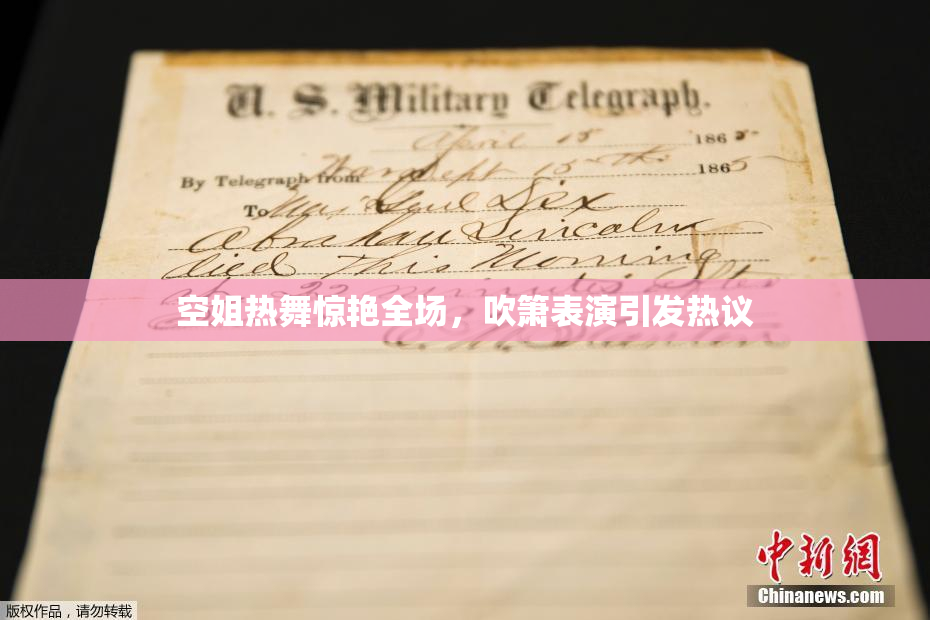 U. S. Military Telegraph.
April 15 1865
By Telegraph from War Dept 15th 1865
To Maj Genl Dix
Abraham Lincoln
died This Morning
at 22 minutes after
空姐热舞惊艳全场，吹箫表演引发热议
中新网
Chinanews.com
版权作品，请勿转载